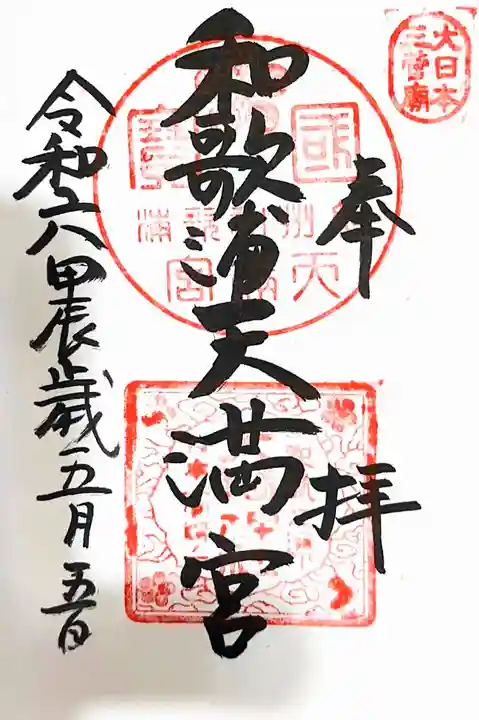 大日本
三菅廟
奉拝
和歌浦天満宮
令和六甲辰歳五月五日